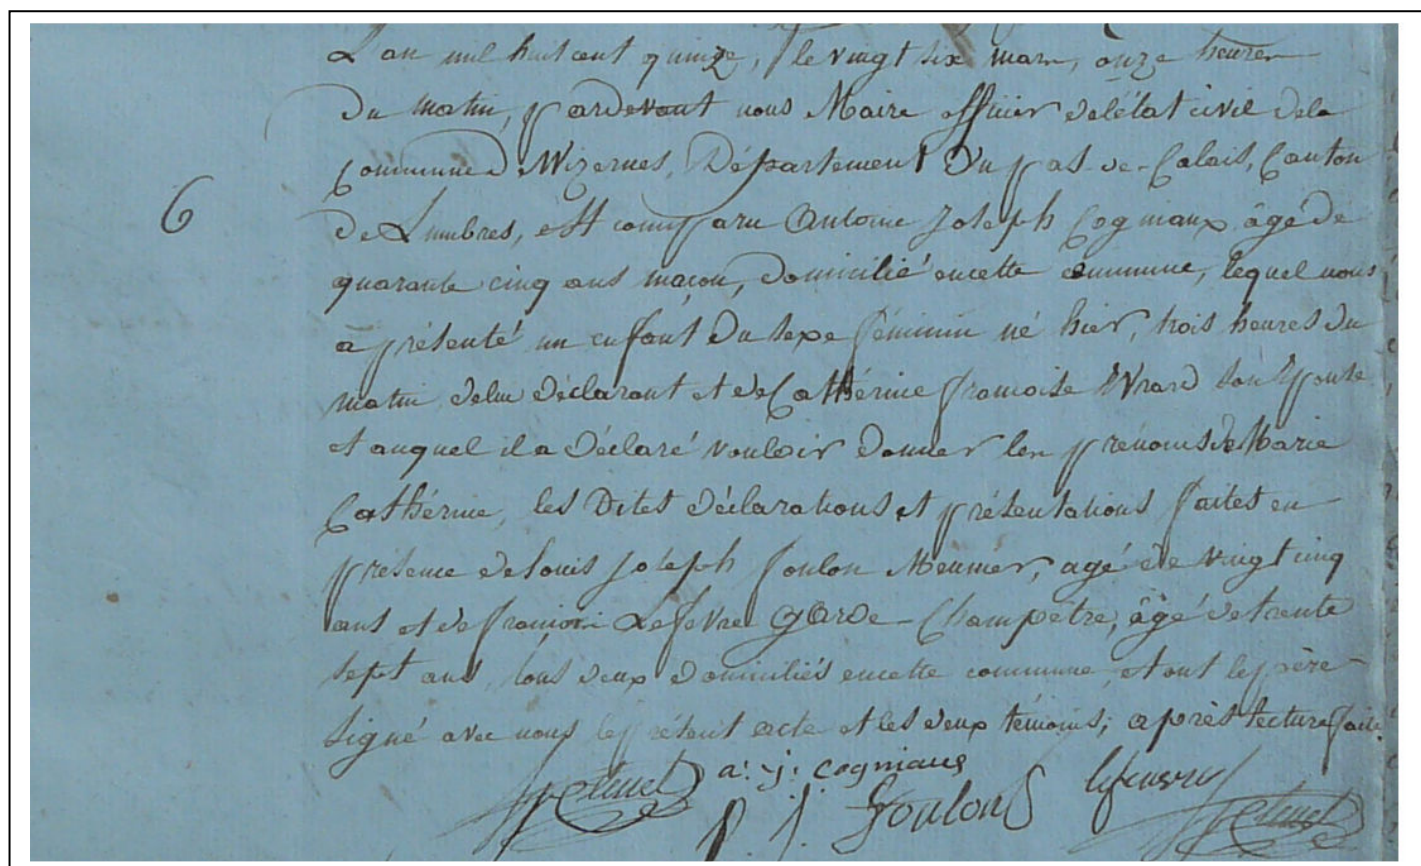 L'an mil huit cent quinze, le vingt six mars, onze heures
du matin, pardevant nous Maire officier de l'état civil de la
Commune d Wizernes, Département du pas-de-Calais, Canton
6
de Lumbres, est comparu Antoine Joseph Cogniaux âgé de
quarante cinq ans maçon, domicilié en cette commune, lequel nous
a présenté un enfant du sexe féminin né hier, trois heures du
matin, de lui déclarant et de Cathérine françoise Evrard son Epouse
et auquel il a déclaré vouloir donner les prénoms de Marie
Cathérine, les dites déclarations et présentations faites en
présence de Louis Joseph foulon Meunier, agé de vingt cinq
ans et de françois Lefevre garde-Champêtre, âgé de trente
sept ans, tous deux domiciliés en cette commune, et ont le père
signé avec nous le présent acte et les deux témoins; après lecture faite.
a: j: cogniaux
foulon lefeuvre